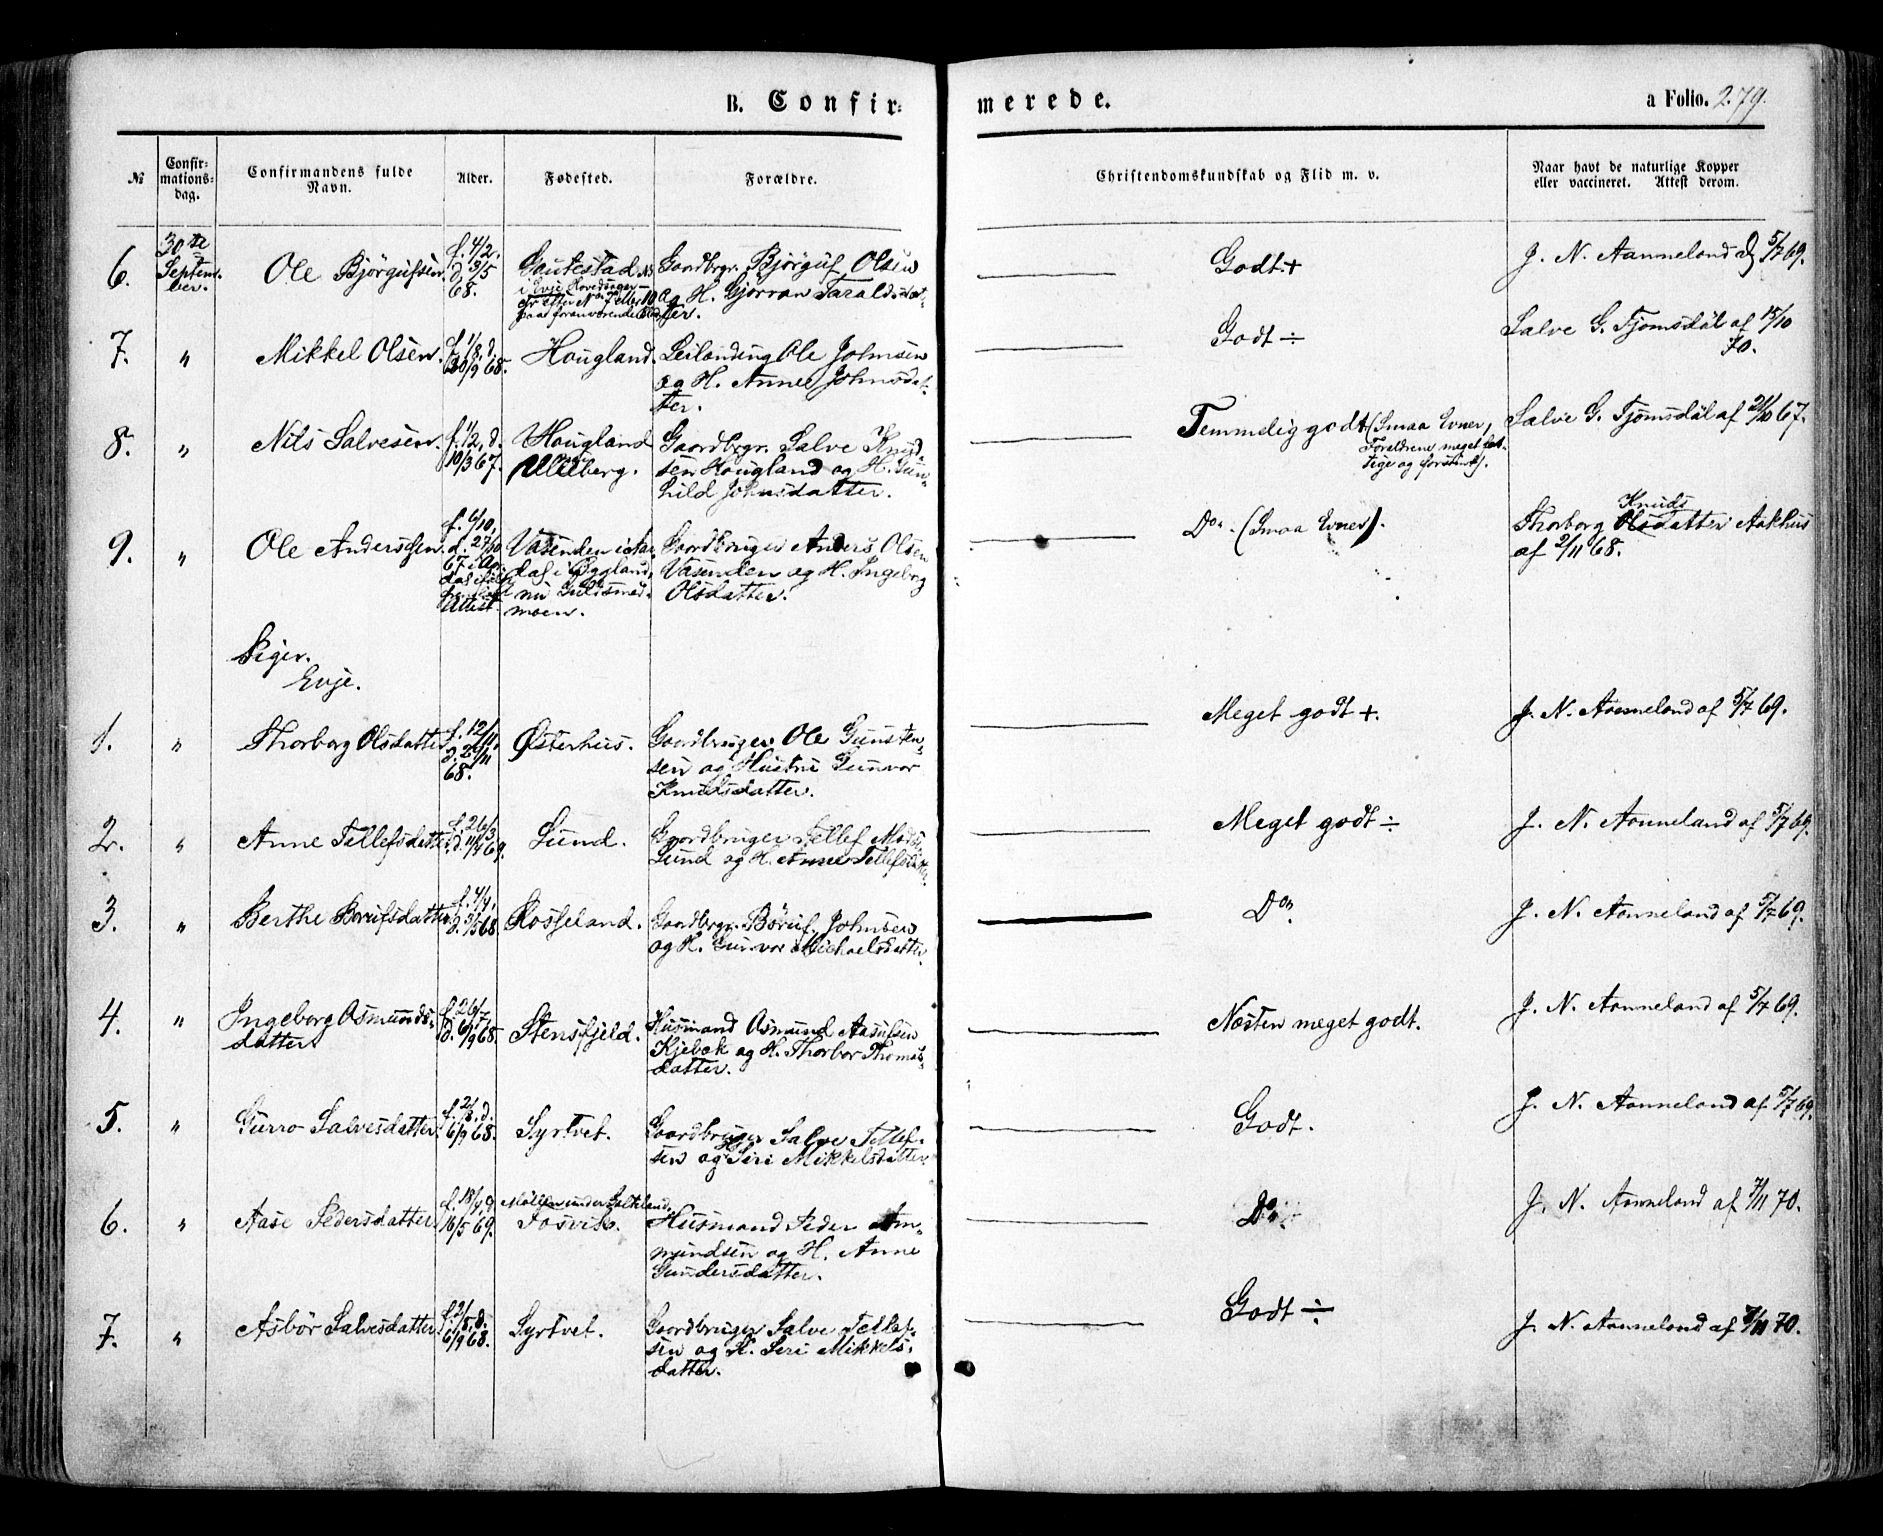 B. Confir=
merede.
a Folio. 279.
No
Confir=
mations=
dag.
Confirmandens fulde
Navn.
Alder.
Fødested.
Forældre.
Christendomskundskab og Flid m. v.
Naar havt de naturlige Kopper
eller vaccineret. Attest derom.
6.
30te
Septem-
ber.
Ole Bjørgufsen.
f. 4/2.
d. 3/5
68.
Gautestad
i Evje Hovedsogn
Gaardbrgr. Bjørguf Olsen
og H. Gjørran Taraldsdat-
ter.
Godt +
J. N. Aanneland af 5/7 69.
7.
"
Mikkel Olsen.
f. 1/8, d.
20/9 68.
Hougland.
Leilænding Ole Johnsen
og H. Anne Johnsdat-
ter.
Godt ÷
Salve G. Tjomsdøl af 15/10
70.
8.
"
Nils Salvesen.
f. 1/2, d.
10/3 67.
Hougland
Uleberg.
Gaardbrgr. Salve Knud-
sen Hougland og H. Gun-
hild Johnsdatter.
Temmelig godt (Smaa Evner,
Forældrene meget fat-
tige og
Salve G. Tjomsdøl af 21/10 67.
9.
"
Ole Anderssen
f. 6/10,
d. 27/10
67 i
Attest.
Vasenden i Aar-
dal i Bygland,
nu Guldsmed-
moen.
Gaardbruger Anders Olsen
Vasenden og H. Ingeborg
Olsdatter.
Do. (Smaa Evner).
Knuds
Thorborg Olsdatter Aakhus
af 2/11 68.
Piger.
Evje.
1.
"
Thorborg Olsdatter
f. 12/11,
d. 22/11
68.
Østerhus.
Gaardbruger Ole Gunsten-
sen og Hustru Gunvor
Knudsdatter.
Meget godt +.
J. N. Aanneland af 5/7 69.
2.
"
Anne Tellefsdatter
f. 26/3
d. 11/4 69.
Lund.
Gaardbruger Tellef Mads.
Lund og H. Anne Tellefsdatter.
Meget godt ÷
J. N. Aanneland af 5/7 69.
3.
"
Berthe Børufsdatter
f. 4/4,
d. 3/5 68.
Rosseland.
Gaardbrgr. Børuf Johnsen
og H. Gunvor Michaelsdatter.
Do.
J. N. Aanneland af 5/7 69.
4.
"
Ingeborg Osmunds-
datter
f. 26/7,
d. 6/9 68.
Stensfjeld.
Husmand Osmund Aasufsen
Kjebæk og H. Thorbor Thomas-
datter.
Næsten meget godt.
J. N. Aanneland af 5/7 69.
5.
"
Gurro Salvesdatter.
f. 2/8, d.
6/9 68.
Syrtvet.
Gaardbruger Salve Tellef-
sen og H. Siri Mikkelsdatter.
Godt.
J. N. Aanneland af 5/7 69.
6.
"
Aase Pedersdatter
f. 18/4, d.
16/5 69.
Fosvik.
Husmand Peder Am-
mundsen og H. Anne
Gundersdatter.
Do.
J. N. Aanneland af 7/11 70.
7.
"
Asbør Salvesdatter
f. 2/8, d.
6/9 68.
Syrtvet.
Gaardbruger Salve Tellef-
sen og H. Seri Mikkels-
datter.
Godt ÷
J. N. Aanneland af 7/11 70.